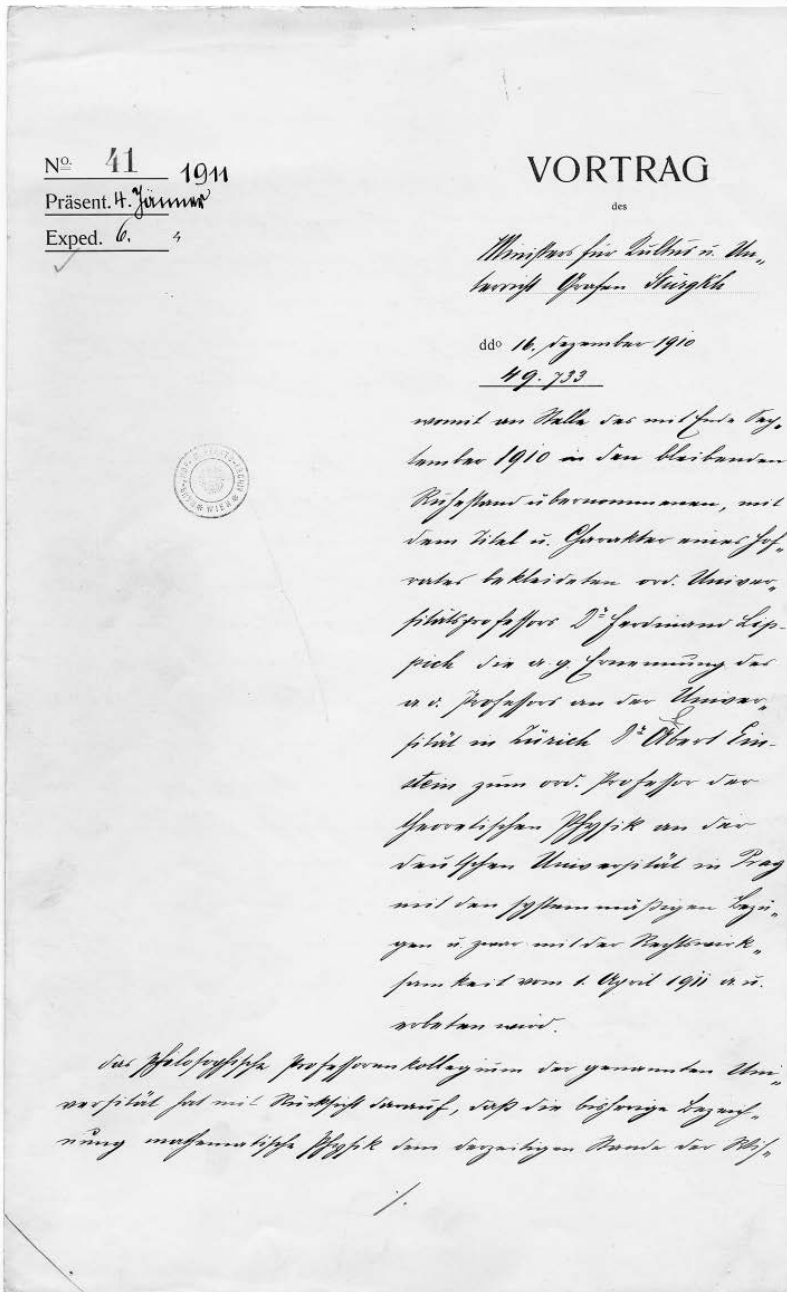 No. 41
1911
Präsent. 4. Jänner
Exped. 6. "
VORTRAG
des
Ministers für Kultus u. Un„
terricht Grafen Stürgkh
ddo 16. Dezember 1910
49.733
womit an Stelle des mit Ende Sep„
tember 1910 in den bleibenden
Ruhestand übernommenen, mit
dem Titel u. Charakter eines Hof„
rates bekleideten ord. Univer„
sitätsprofessors Dr. Ferdinand Lip-
pich die a. g. Ernennung des
a. o. Professors an der Univer„
sität in Zürich Dr. Albert Ein-
stein zum ord. Professor der
theoretischen Physik an der
deutschen Universität in Prag
mit den systemmäßigen Bezü„
gen u. zwar mit der Rechtswirk„
samkeit vom 1. April 1911 a. u.
erbeten wird.
Das philosophische Professorenkollegium der genannten Uni„
versität hat mit Rücksicht darauf, daß die bisherige Bezeich„
nung mathematische Physik dem derzeitigen Stande der Wis„
./.